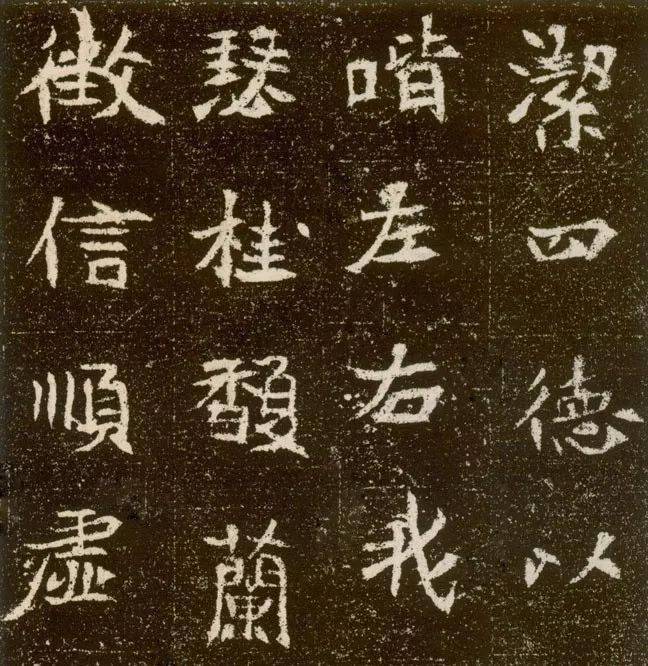 潔四德以
喈左右我
瑟桂馥蘭
徽信順虛